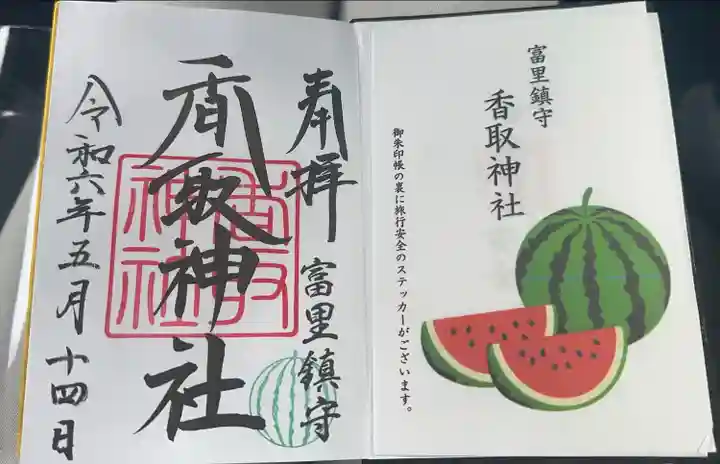 富里鎮守
香取神社
御朱印帳の裏に旅行安全のステッカーがございます。
奉拝
富里鎮守
香取神社
香取神社
令和六年五月十四日